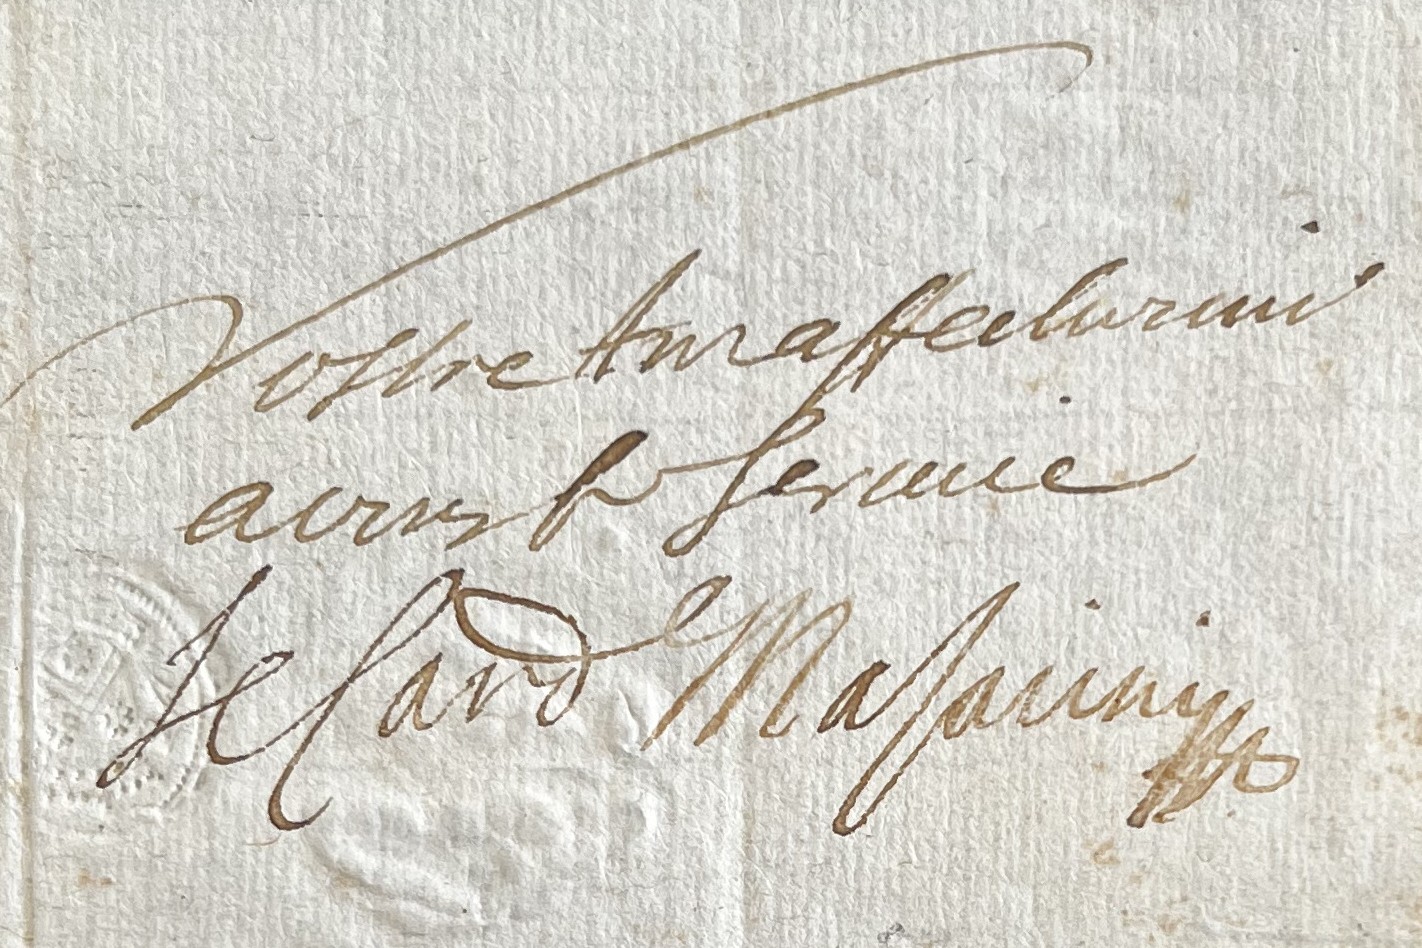 Vostre tresaffectionné
a vous seruice
le Card Mazarini